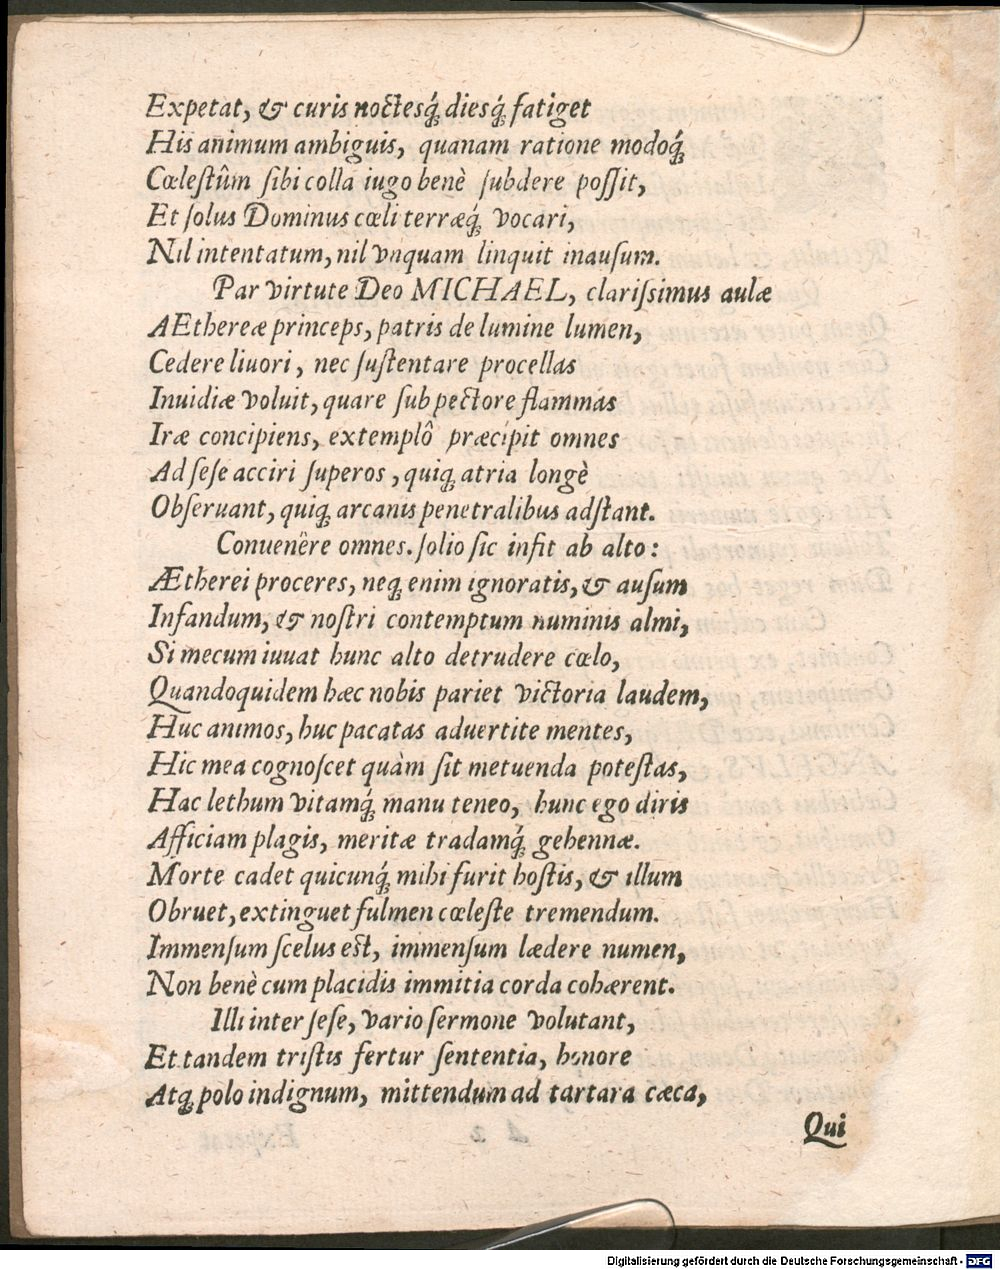 Expetat, & curis noctesq́; diesq́; fatiget
His animum ambiguis, quanam ratione modoq́;
Cœlestûm sibi colla iugo benè subdere possit,
Et solus Dominus cœli terræq́; vocari,
Nil intentatum, nil vnquam linquit inausum.
Par virtute Deo MICHAEL, clarissimus aulæ
AEthereæ princeps, patris de lumine lumen,
Cedere liuori, nec sustentare procellas
Inuidiæ voluit, quare sub pectore flammas
Iræ concipiens, extemplô præcipit omnes
Ad sese acciri superos, quiq; atria longè
Obseruant, quiq; arcanis penetralibus adstant.
Conuenêre omnes. solio sic infit ab alto:
Ætherei proceres, neq; enim ignoratis, & ausum
Infandum, & nostri contemptum numinis almi,
Si mecum iuuat hunc alto detrudere cœlo,
Quandoquidem hæc nobis pariet victoria laudem,
Huc animos, huc pacatas aduertite mentes,
Hic mea cognoscet quàm sit metuenda potestas,
Hac lethum vitamq́; manu teneo, hunc ego diris
Afficiam plagis, meritæ tradamq́; gehennæ.
Morte cadet quicunq́; mihi furit hostis, & illum
Obruet, extinguet fulmen cœleste tremendum.
Immensum scelus est, immensum lædere numen,
Non benè cum placidis immitia corda cohærent.
Illi inter sese, vario sermone volutant,
Et tandem tristis fertur sententia, honore
Atq; polo indignum, mittendum ad tartara cæca,
Qui
Digitalisierung gefördert durch die Deutsche Forschungsgemeinschaft - DFG